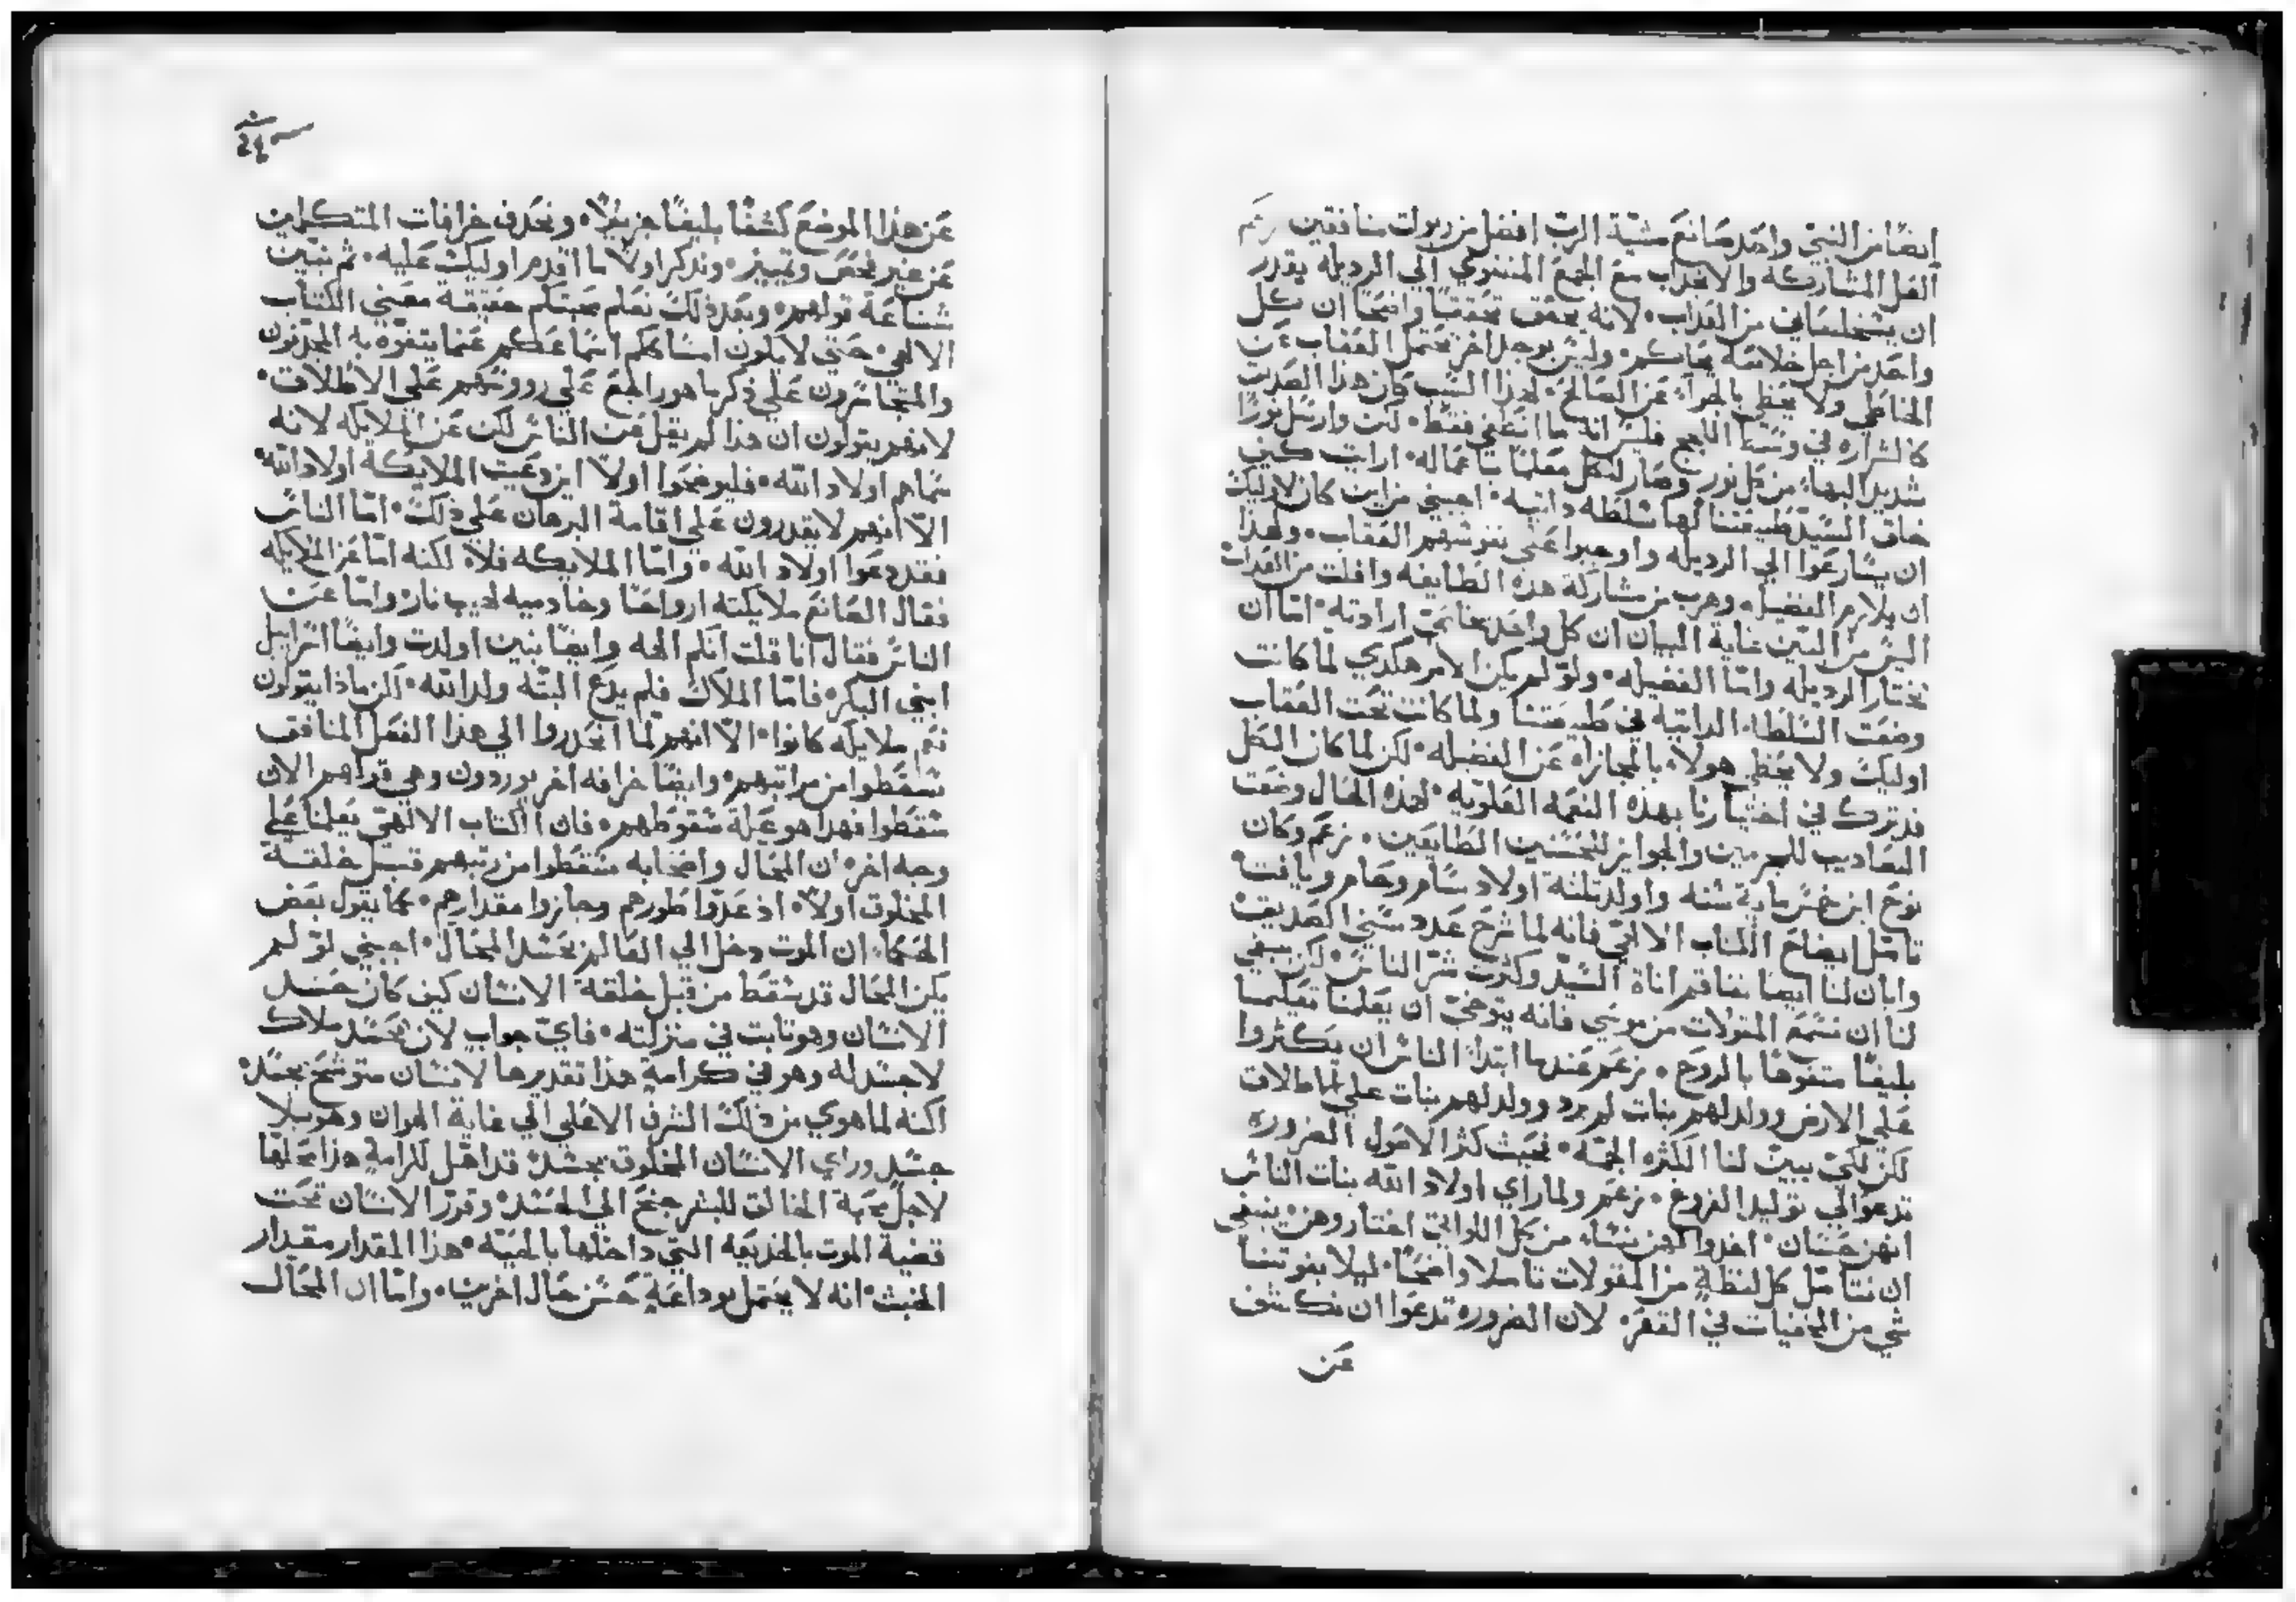 ايضًا من النبيّ واحد صانع مشيّة الربّ افضل من ربوات منافقين زعم
الفل المشاركه والاجداب مع الجمع المنضوي الي الرديله يقدر
ان يستخلصاني من العداب، لانه يحقق تحقيقًا واضحًا ان كل
واحد من اجل خلاصه يحاكم، وليس يوجد اخر يحتمل العقاب عن
الخاطي ولا يحظي بالجزاء عن الصالح، لهذا السبب كان هذا الصديق
كالشراره في وسط اللجج فليس انه ما انطفي فقط، لكن وارسل نورًا
شديد البهاء من كل نور وصار للكل معلمًا باعماله، ارايت كيف
خلق السيّد طبيعتنا لها سلطه داتيه، اجبني من اين كان لاوليك
ان يسارعوا الي الرديله واوجبوا علي نفوسهم العقاب، ولهذا
ان يلازم الفضيله وهرب من مشاركة هذه الطايفه وافلت من العداب
اليس من البيّن غاية البيان ان كل واحد بحسب ارادته، امّا ان
يختار الرديله وامّا الفضيله، ولو لم يكن الامر هكدي لما كانت
وضعت السلطه الداتيه في طبيعتنا ولما كانت تحت العقاب
اوليك ولا يحظي هولاء بالمجازاه عن الفضيله، لكن لما كان الكل
قد ترك في اختيارنا بهذه النعمه العلويه، لهذه الحال وضعت
التعاديب للمجرمين والجوايز للمحسنين الطايعين، زعم وكان
نوح ابن خمس ماية سنه واولد تلتة اولاد سام وحام ويافت
تامّل ايضاح الكتاب الالاهيّ فانه لما شرح عدد سنيّ الصديق
وابان لنا ايضا تفاقم اناة السيّد وكثرت شر الناس، لكن ينبغي
لنا ان نسمع المقولات من موسي فانه يتوخيّ ان يعلمنا تعليما
بليغًا متفوهًا بالروح، زعم عندما ابتدا الناس ان يكثروا
علي الارض وولد لهم بنات لم يرد وولد لهم بنات علي الاطلاق
لكن لكيّ يبين لنا الكثره الجمّه، بحيث كثر الاصول الضروره
تدعوا الي توليد الفروع، زعم ولما راي اولاد الله بنات الناس
انهن حسان، اخدوا لهن نساء من كل اللواتي اختاروهن، ينبغي
ان نتامّل كل لفظةٍ من المقولات تاملا واضحًا، ليلا يفوتنا
شي من الخفيات في القعر، لان الضروره تدعوا ان نكشف
عن
عن هذا الموضع كشفًا بليغًا جزيلًا، ونحدف خرافات المتكلمين
عن غير فحص وتمييز، ونذكر اولا ما اقدم اوليك عليه، ثم نبيّن
شناعة قولهم، وبعد ذلك نعلم محبتكم حقيقة معني الكتاب
الالاهي، حتي لا يكون امساككم اسماعكم عنما يتفوّه به المجدّفون
والمتجاسرون علي ذكر ما هو راجع علي رووسهم علي الاطلاق،
لانهم يقولون ان هذا لم يقل عن الناس لكن عن الملايكه لانه
سماهم اولاد الله، فليوضحوا اولاً اين دعيت الملايكة اولاد الله
الاّ انهم لا يقدرون علي اقامة البرهان علي ذلك، امّا الناس
فقد دعوا اولاد الله، وامّا الملايكه فلا، لكنه امّا عن الملايكه
فقال الصانع ملايكته ارواحًا وخادميه لهيب نار، وامّا عن
الناس فقال انا قلت انكم الهه وايضًا بنين اولدت وايضًا اسراييل
ابني البكر، فامّا الملاك فلم يدع البتّه ولد الله، لكن ماذا يقولون
نعم ملايكه كانوا، الاّ انهم لما انحدروا الي هذا الفعل المنافق
سقطوا من مراتبهم، وايضًا خرافه اخر يوردون وهي قولهم الان
سقطوا فهدا هو علة سقوطهم، فان الكتاب الالاهيّ يعلمنا علي
وجه اخر، ان المحال واصحابه سقطوا من رتبهم قبل خلقة
المخلوق اولاً، اذ عدّوا طورهم وجازوا مقدارهم، كما يقول بعض
الحكما، ان الموت دخل الي العالم بحسد المحال، اجبني لو لم
يكن المحال قد سقط من قبل خلقة الانسان كيف كان حسد
الانسان وهو تابت في منزلته، فايّ جواب لان يحسد ملاك
لا جسد له وهو في كرامةٍ هذا تقديرها لانسان متوشح بجسد،
لكنه لما هوي من ذلك الشرف الاعلي الي غاية الهوان وهو بلا
جسد وراي الانسان المخلوق بجسدٍ قد اهل لكرامةٍ هذا محلها
لاجل محبة الخالق للبشر جنح الي الحسد، وقرر الانسان تحت
قضية الموت بالخديعه التي داخلها بالحيّه، هذا المقدار مقدار
الخبث، انه لا يحتمل بوداعةٍ حسن حال اخرين، وامّا ان المحال